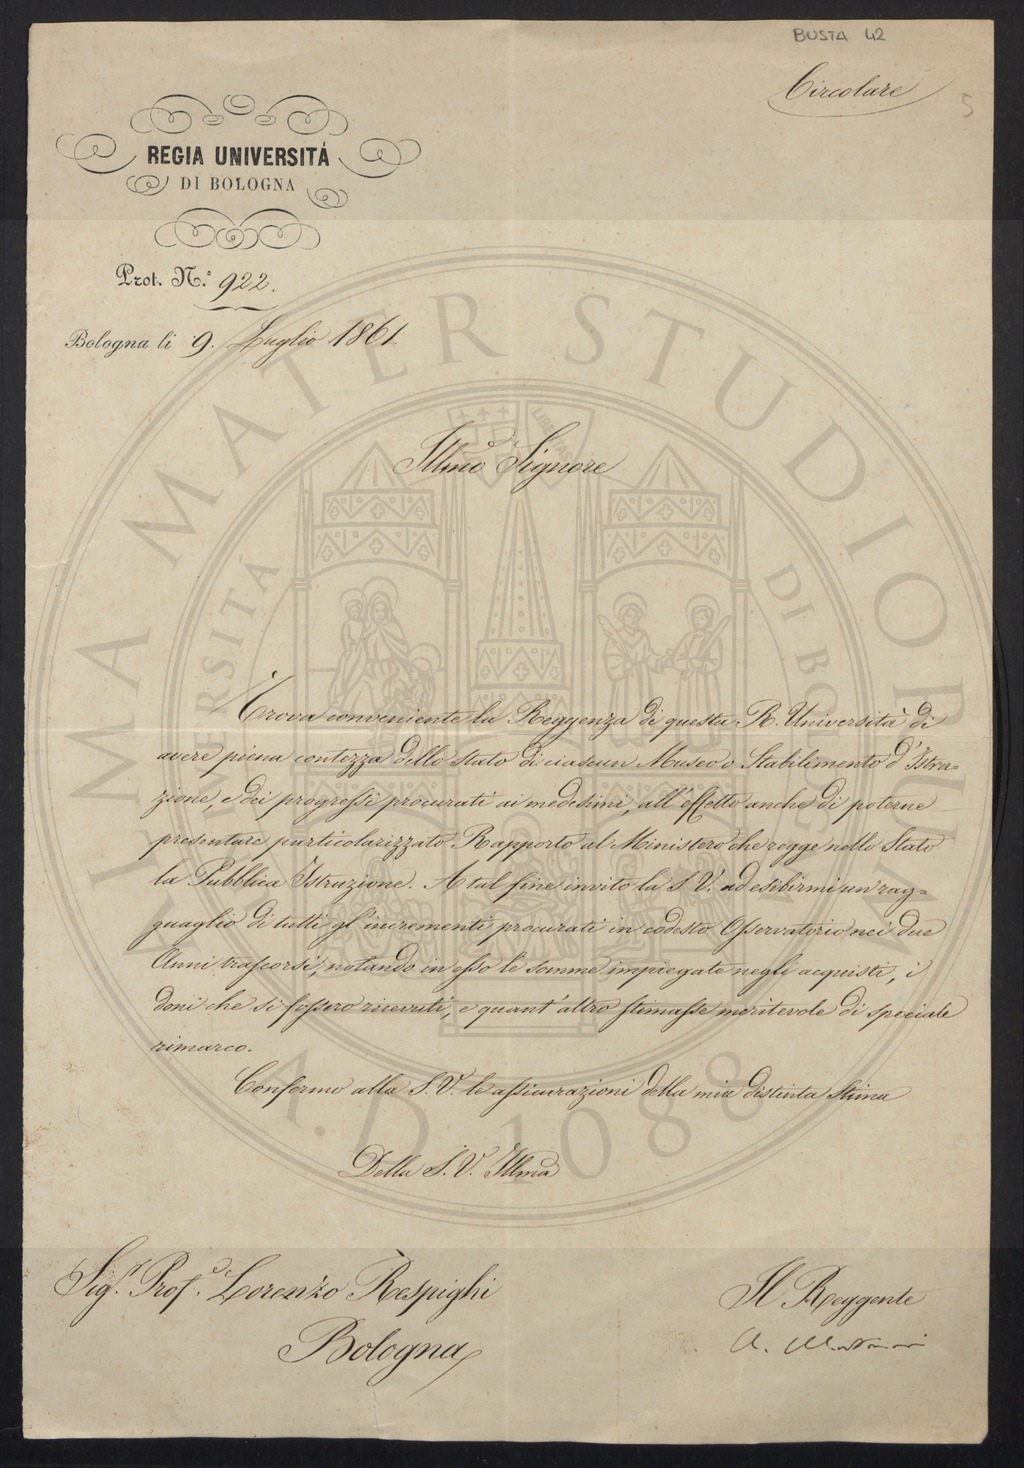 BUSTA 42
Circolare
5
REGIA UNIVERSITÀ
DI BOLOGNA
Prot. N.º 922.
Bologna li 9. Luglio 1861.
Illmo Signore
Trova conveniente la Reggenza di questa R. Università di
avere piena contezza dello stato di ciascun Museo o Stabilimento d'Istru=
zione, e dei progressi procurati ai medesimi, all'effetto anche di poterne
presentare particolarizzato Rapporto al Ministero che regge nello Stato
la Pubblica Istruzione. A tal fine invito la S. V. ad esibirmi un rag=
guaglio di tutti gl'incrementi procurati in codesto Osservatorio nei due
Anni trascorsi, notando in esso le somme impiegate negli acquisti, i
doni che si fossero ricevuti, e quant'altro stimasse meritevole di speciale
rimarco.
Confermo alla S. V. le assicurazioni della mia distinta Stima
Della S. V. Illma
Sig.r Prof.e Lorenzo Respighi
Bologna
Il Reggente
A.
ALMA MATER STUDIORUM
UNIVERSITÀ DI BOLOGNA
A.D. 1088
LIBERTAS